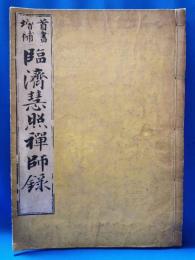 首書
増補
臨濟慧照禪師錄